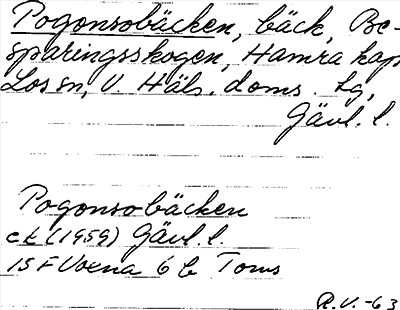 Pogonsobäcken, bäck, Be-
sparingsskogen, Hamra kap
Los sn, V. Häls. doms. lg,
Gävl. l.
Pogonsobäcken
ek (1959) Gävl. l.
15 F Voxna 6 b Toms
R.V. -63